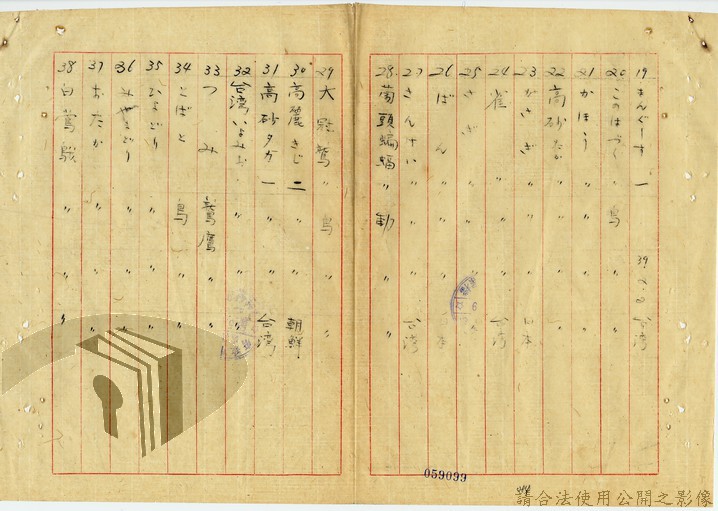 19 まんぐーす 一 39.2.3 台湾
20 このはづく 〃 鳥 〃 〃
21 かほう 〃 〃 〃
22 高砂たか 〃 〃 〃
23 がささぎ 〃 〃 日本
24 雀 〃 〃 台湾
25 さぎ 〃 〃
26 ばん 〃 〃 日本
27 さんけい 〃 〃 台湾
28 菊頭蝙蝠 〃 動 〃 〃
29 大冠鷲 〃 鳥 〃 〃
30 高麗きじ 二 〃 〃 朝鮮
31 高砂タカ 一 〃 〃 台湾
32 台湾 〃 〃 〃 〃
33 つみ 鷲鷹 〃 〃
34 とばと 鳥 〃 〃
35 ひよどり 〃 〃 〃
36 みやまどり 〃 〃 〃
37 おたか 〃 〃 〃
38 白鶯 〃 〃 〃
059099
請合法使用公開之影像